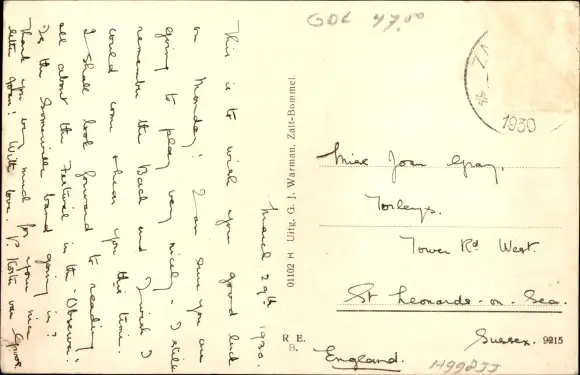 March 29th 1930.
This is to wish you good luck
on Monday! I am sure you are
going to play very nicely - I still
remember the Bach and I wish I
could come & hear you this time.
I shall look forward to reading
all about the Festival in the "Observer".
Is the Somerville band going in?
Thank you very much for your nice
letter Joan! With love.
GOL 47.00
1930
01102 H Uitg. G. J. Warman, Zalt-Bommel.
Miss Joan Gray,
Torleys,
Tower Rd West.
St Leonards-on-Sea.
Sussex.
England.
R. E.
B.
9215